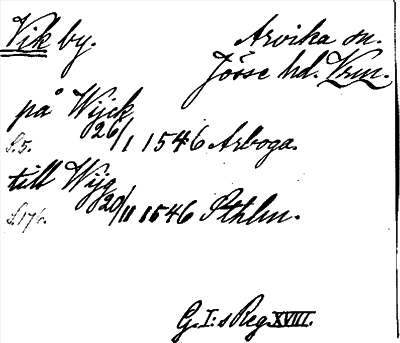 Vik by. Arvika sn.
Jösse hd. Vrm.
på Wijck
S.5. 26/1 1546 Arboga.
till Wijg
S.176. 20/11 1546 Sthlm.
G. I:s Reg. XVIII.